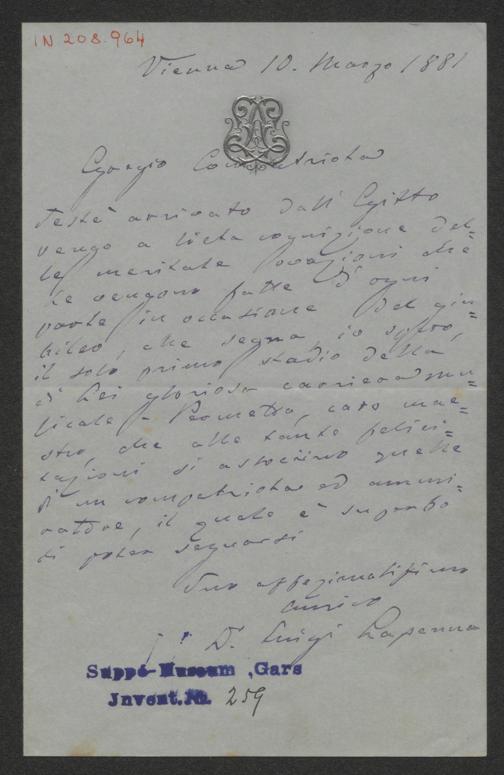 IN 208.964
Vienna 10. Marzo 1881
Egregio Compatriota
Testè arrivato dall' Egitto
vengo a lieta cognizione del=
le meritate ovazioni che
Le vengono fatte d'ogni
parte in occasione del giu=
bileo, che segna, io spero,
il solo primo stadio della
di Lei gloriosa carriera mu=
sicale. Permetta, caro mae=
stro, che alle tante felici=
tazioni si associno quelle
d'un compatriota ed ammi=
ratore, il quale è superbo
di poter segnarsi
Suo affezionatissimo
amico
Dr. Luigi Lapenna
Suppé-Museum, Gars
Jnvent.Nr. 259